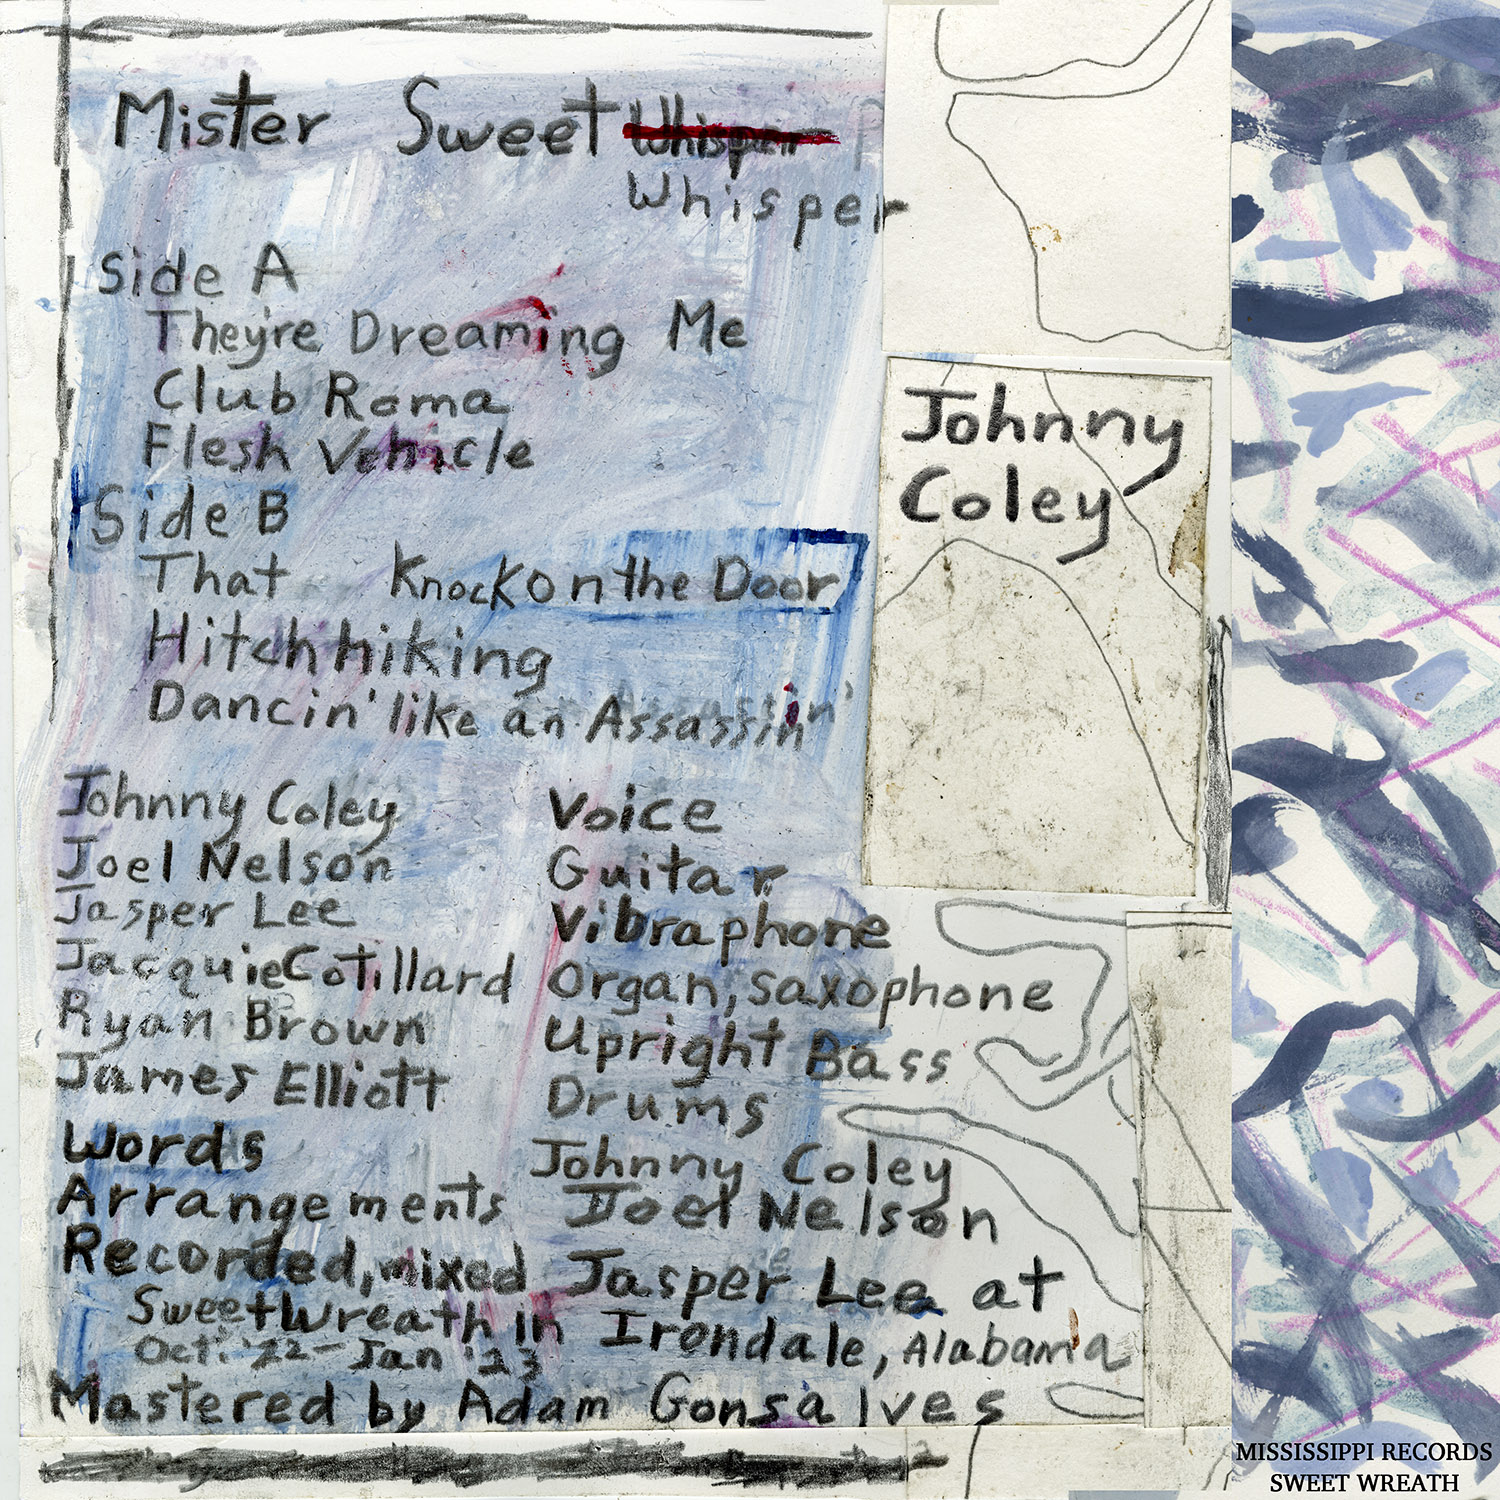 Mister Sweet Whisper
Whisper
Side A
They're Dreaming Me
Club Roma
Flesh Vehicle
Side B
That Knock on the Door
Hitchhiking
Dancin' like an Assassin'
Johnny Coley Voice
Joel Nelson Guitar
Jasper Lee Vibraphone
Jacquie Cotillard Organ, saxophone
Ryan Brown Upright Bass
James Elliott Drums
Words Johnny Coley
Arrangements Joel Nelson
Recorded, mixed Jasper Lee at
Sweet Wreath in Irondale, Alabama
Oct. '22-Jan '23
Mastered by Adam Gonsalves
Johnny
Coley
MISSISSIPPI RECORDS
SWEET WREATH